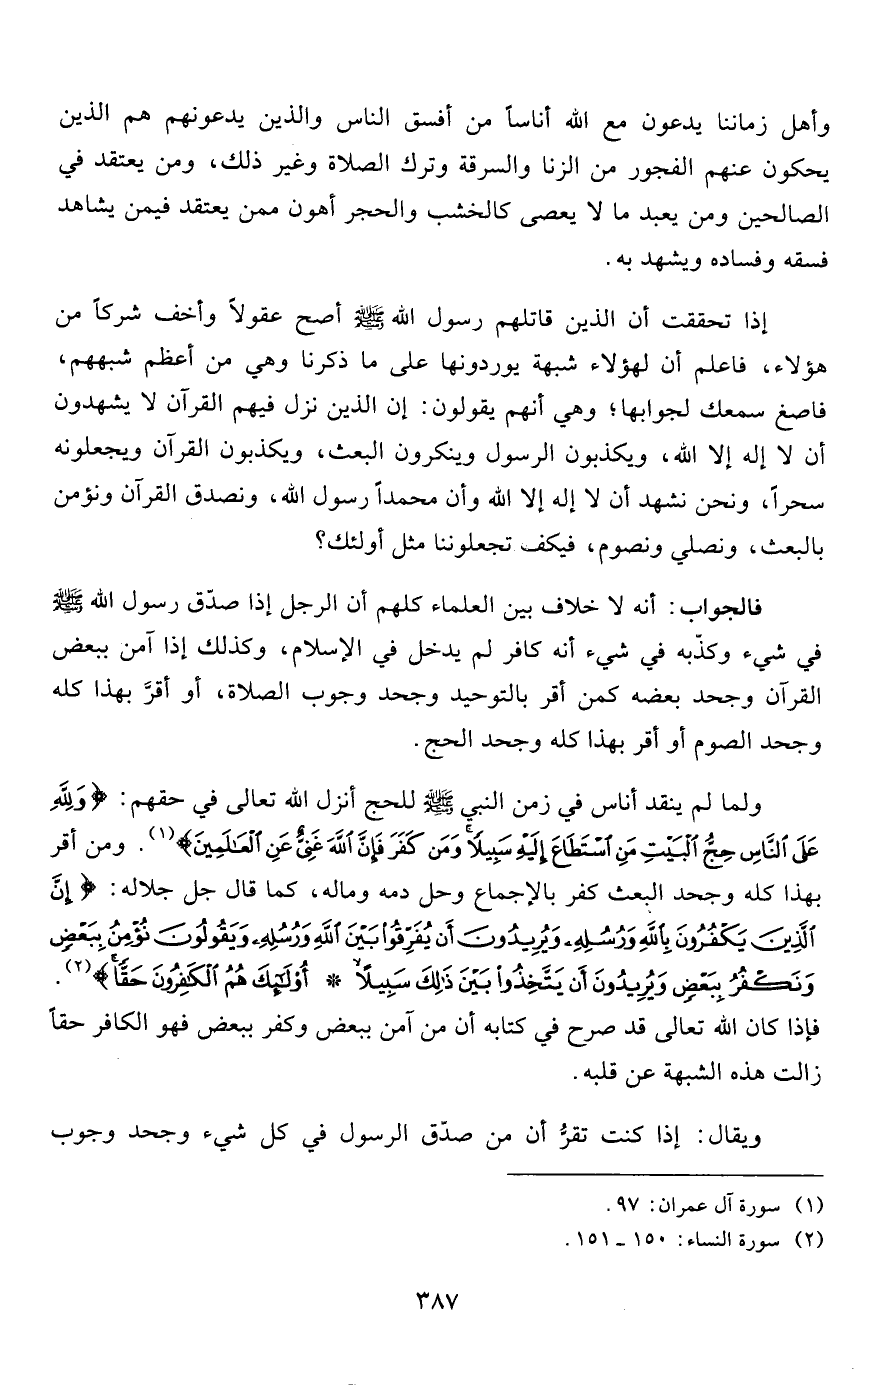 وأهل زماننا يدعون مع الله أناساً من أفسق الناس والذين يدعونهم هم الذين
يحكون عنهم الفجور من الزنا والسرقة وترك الصلاة وغير ذلك، ومن يعتقد في
الصالحين ومن يعبد ما لا يعصى كالخشب والحجر أهون ممن يعتقد فيمن يشاهد
فسقه وفساده ويشهد به.
إذا تحققت أن الذين قاتلهم رسول الله ﷺ أصح عقولاً وأخف شركاً من
هؤلاء، فاعلم أن لهؤلاء شبهة يوردونها على ما ذكرنا وهي من أعظم شبههم،
فاصغ سمعك لجوابها؛ وهي أنهم يقولون: إن الذين نزل فيهم القرآن لا يشهدون
أن لا إله إلا الله، ويكذبون الرسول وينكرون البعث، ويكذبون القرآن ويجعلونه
سحراً، ونحن نشهد أن لا إله إلا الله وأن محمداً رسول الله، ونصدق القرآن ونؤمن
بالبعث، ونصلي ونصوم، فيكف تجعلوننا مثل أولئك؟
فالجواب: أنه لا خلاف بين العلماء كلهم أن الرجل إذا صدّق رسول الله ﷺ
في شيء وكذّبه في شيء أنه كافر لم يدخل في الإسلام، وكذلك إذا آمن ببعض
القرآن وجحد بعضه كمن أقر بالتوحيد وجحد وجوب الصلاة، أو أقرَّ بهذا كله
وجحد الصوم أو أقر بهذا كله وجحد الحج.
ولما لم ينقد أناس في زمن النبي ﷺ للحج أنزل الله تعالى في حقهم: ﴿وَلِلَّهِ
عَلَى ٱلنَّاسِ حِجُّ ٱلْبَيْتِ مَنِ ٱسْتَطَاعَ إِلَيْهِ سَبِيلًاۚ وَمَن كَفَرَ فَإِنَّ ٱللَّهَ غَنِيٌّ عَنِ ٱلْعَٰلَمِينَ﴾(١). ومن أقر
بهذا كله وجحد البعث كفر بالإجماع وحل دمه وماله، كما قال جل جلاله: ﴿إِنَّ
ٱلَّذِينَ يَكْفُرُونَ بِٱللَّهِ وَرُسُلِهِۦ وَيُرِيدُونَ أَن يُفَرِّقُوا۟ بَيْنَ ٱللَّهِ وَرُسُلِهِۦ وَيَقُولُونَ نُؤْمِنُ بِبَعْضٍ
وَنَكْفُرُ بِبَعْضٍ وَيُرِيدُونَ أَن يَتَّخِذُوا۟ بَيْنَ ذَٰلِكَ سَبِيلًا * أُو۟لَٰٓئِكَ هُمُ ٱلْكَٰفِرُونَ حَقًّاۚ﴾(٢).
فإذا كان الله تعالى قد صرح في كتابه أن من آمن ببعض وكفر ببعض فهو الكافر حقاً
زالت هذه الشبهة عن قلبه.
ويقال: إذا كنت تقرُّ أن من صدّق الرسول في كل شيء وجحد وجوب
(١) سورة آل عمران: ٩٧.
(٢) سورة النساء: ١٥٠ ـ ١٥١.
٣٨٧